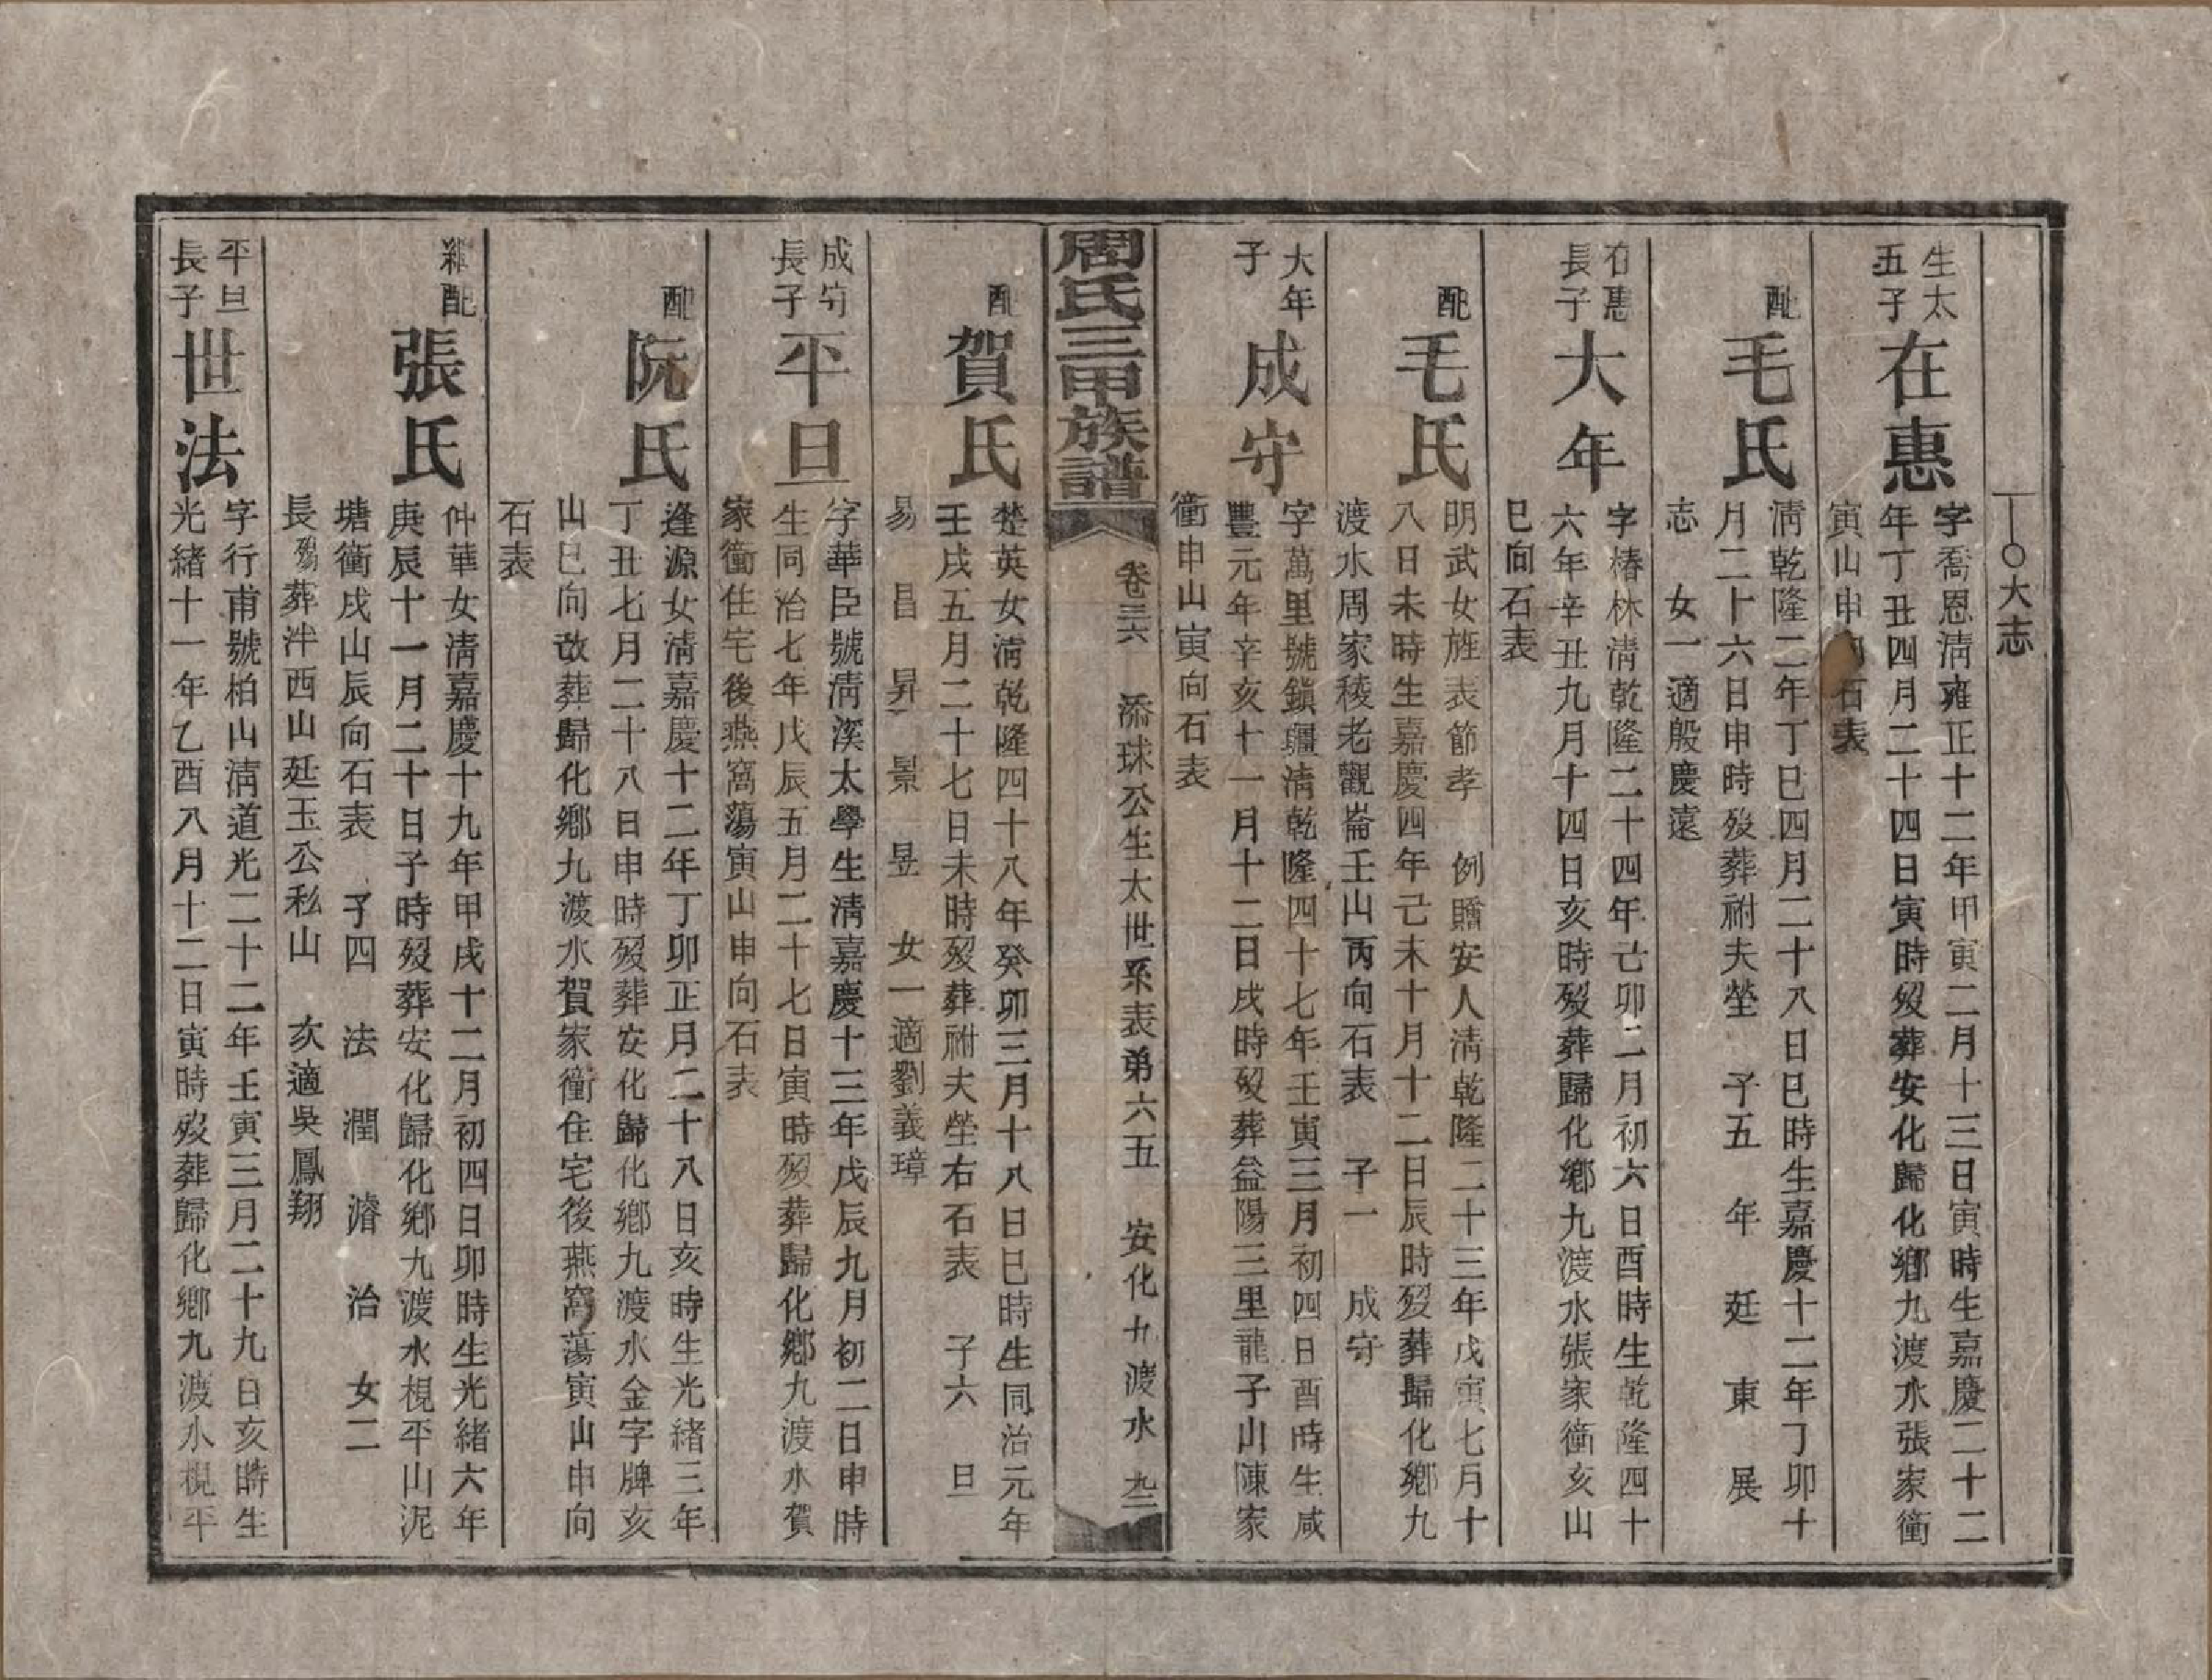 ○大志
生太
五子
在惠
字喬恩清雍正十二年甲寅二月十三日寅時生嘉慶二十二
年丁丑四月二十四日寅時歿葬安化歸化鄉九渡水張家衝
寅山申向石表
配
毛氏
清乾隆二年丁巳四月二十八日巳時生嘉慶十二年丁卯十
月二十六日申時歿葬祔夫塋 子五 年 廷 東 展
志 女一適殷慶遠
在惠
長子
大年
字椿林清乾隆二十四年己卯二月初六日酉時生乾隆四十
六年辛丑九月十四日亥時歿葬歸化鄉九渡水張家衝亥山
巳向石表
配
毛氏
明武女旌表節孝 例贈安人清乾隆二十三年戊寅七月十
八日未時生嘉慶四年己未十月十二日辰時歿葬歸化鄉九
渡水周家稜老觀崙壬山丙向石表 子一 成守
大年
子
成守
字萬里號鎮疆清乾隆四十七年壬寅三月初四日酉時生咸
豐元年辛亥十一月十二日戌時歿葬益陽三里龍子山陳家
衝申山寅向石表
周氏三甲族譜
卷三六 添球公生太世系表弟六五 安化九渡水 九二
配
賀氏
楚英女清乾隆四十八年癸卯三月十八日巳時生同治元年
壬戌五月二十七日未時歿葬祔夫塋右石表 子六 旦
易 昌 昇 景 昱 女一適劉義璋
成守
長子
平旦
字華臣號清溪太學生清嘉慶十三年戊辰九月初二日申時
生同治七年戊辰五月二十七日寅時歿葬歸化鄉九渡水賀
家衝住宅後燕窩蕩寅山申向石表
配
阮氏
逢源女清嘉慶十二年丁卯正月二十八日亥時生光緒三年
丁丑七月二十八日申時歿葬安化歸化鄉九渡水金字牌亥
山巳向改葬歸化鄉九渡水賀家衝住宅後燕窩蕩寅山申向
石表
繼配
張氏
仲華女清嘉慶十九年甲戌十二月初四日卯時生光緒六年
庚辰十一月二十日子時歿葬安化歸化鄉九渡水梘平山泥
塘衝戌山辰向石表 子四 法 潤 濬 治 女二
長殤葬泮西山廷玉公私山 次適吳鳳翔
平旦
長子
世法
字行甫號柏山清道光二十二年壬寅三月二十九日亥時生
光緒十一年乙酉八月十二日寅時歿葬歸化鄉九渡水梘平